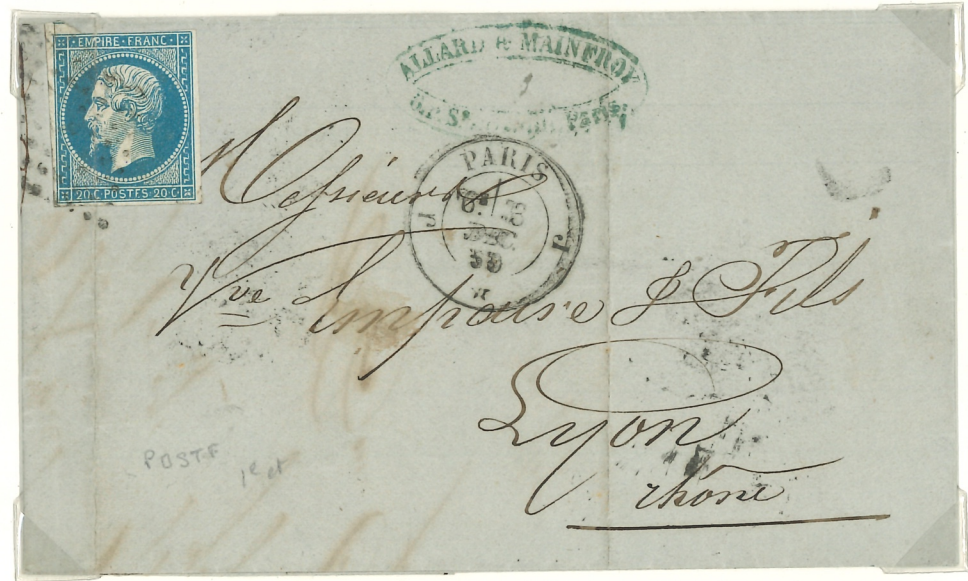 EMPIRE · FRANC ·
20 C · POSTES · 20 C ·
ALLARD & MAINFROY
Paris
PARIS
J J
DEC
Messieurs
Vve & Fils
Lyon
rhône
POSTE